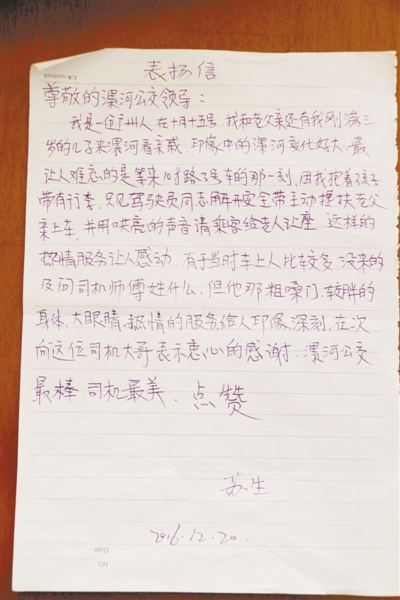 表扬信
尊敬的漯河公交领导：
我是一位广州人，在十月十五号，我和老父亲还有我刚满三
岁的儿子来漯河看亲戚，印像中的漯河变化好大，最
让人难忘的是等来106路7号车的那一刻，因我抱着孩子
带有行李，只见驾驶员同志解开安全带主动搀扶老父
亲上车，并用哄亮的声音请乘客给老人让座，这样的
热情服务让人感动，有于当时车上人比较多，没来的
及问司机师傅姓什么，但他那粗嗓门，较胖的
身体，大眼睛，热情的服务给人印像深刻，在次
向这位司机大哥表示忠心的感谢，漯河公交
最棒，司机最美，点赞
苏生
2016.12.20.